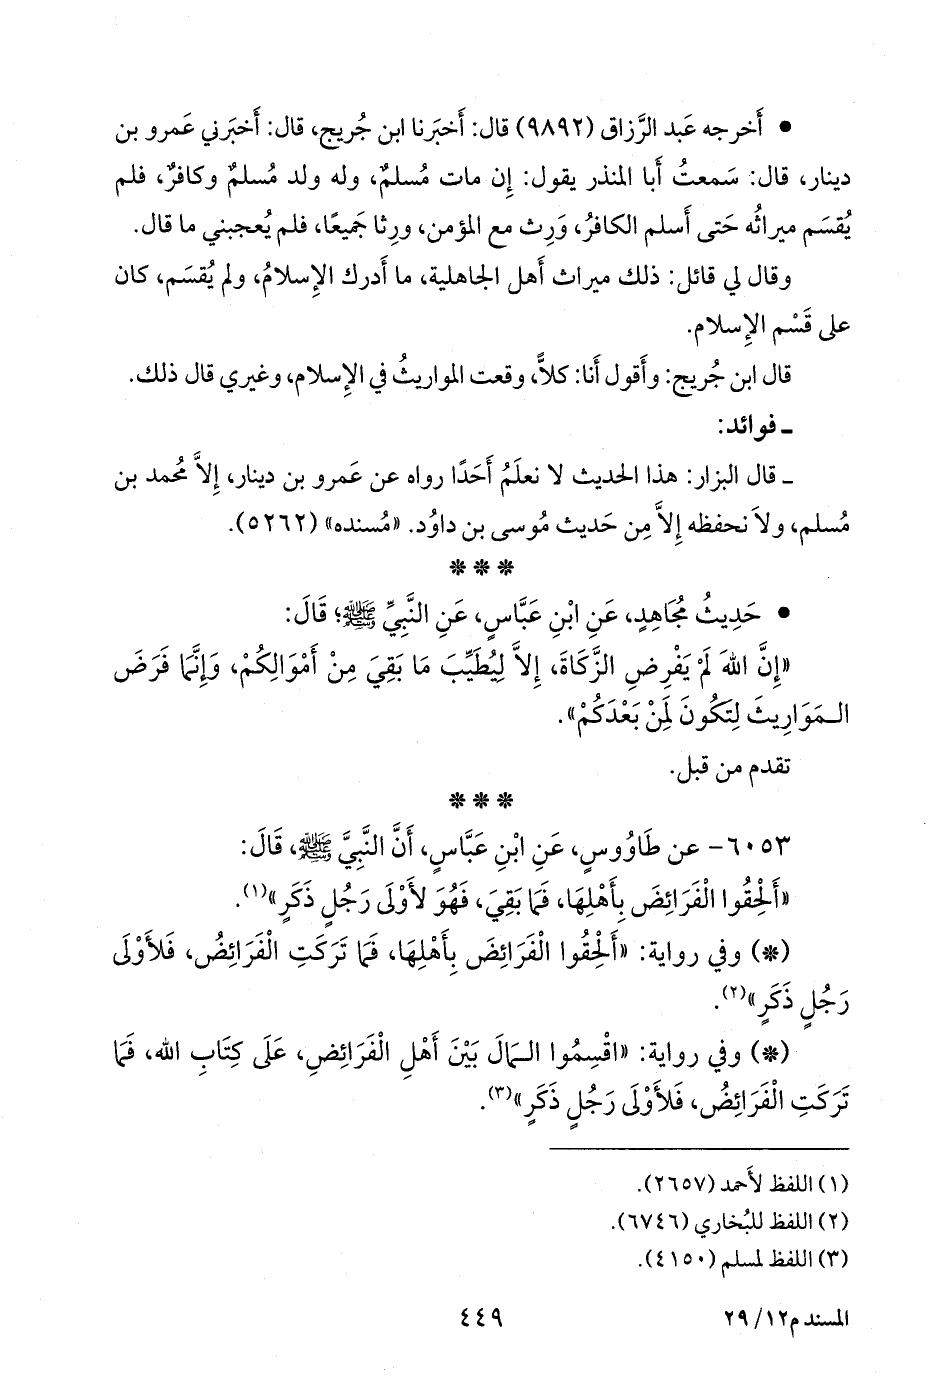 • أَخرجه عَبد الرَّزاق (٩٨٩٢) قال: أَخبَرنا ابن جُريج، قال: أَخبَرني عَمرو بن
دينار، قال: سَمعتُ أَبا المنذر يقول: إِن مات مُسلمٌ، وله ولد مُسلمٌ وكافرٌ، فلم
يُقسَم ميراثُه حَتى أَسلم الكافرُ، وَرِث مع المؤمن، ورِثا جَميعًا، فلم يُعجبني ما قال.
وقال لي قائل: ذلك ميراث أَهل الجاهلية، ما أَدرك الإِسلامُ، ولم يُقسَم، كان
على قَسْم الإِسلام.
قال ابن جُريج: وأَقول أَنا: كلاَّ، وقعت المواريثُ في الإِسلام، وغيري قال ذلك.
ـ فوائد:
ـ قال البزار: هذا الحديث لا نعلَمُ أَحَدًا رواه عن عَمرو بن دينار، إِلاَّ مُحمد بن
مُسلم، ولاَ نحفظه إِلاَّ مِن حَديث مُوسى بن داوُد. «مُسنده» (٥٢٦٢).
* * *
• حَدِيثُ مُجَاهِدٍ، عَنِ ابْنِ عَبَّاسٍ، عَنِ النَّبِيِّ ﷺ؛ قَالَ:
«إِنَّ اللهَ لَمْ يَفْرِضِ الزَّكَاةَ، إِلاَّ لِيُطَيِّبَ مَا بَقِيَ مِنْ أَمْوَالِكُمْ، وَإِنَّمَا فَرَضَ
الـمَوَارِيثَ لِتَكُونَ لِمَنْ بَعْدَكُمْ».
تقدم من قبل.
* * *
٦٠٥٣- عن طَاوُوسٍ، عَنِ ابْنِ عَبَّاسٍ، أَنَّ النَّبِيَّ ﷺ، قَالَ:
«أَلْحِقُوا الْفَرَائِضَ بِأَهْلِهَا، فَمَا بَقِيَ، فَهُوَ لأَوْلَى رَجُلٍ ذَكَرٍ»(١).
(*) وفي رواية: «أَلْحِقُوا الْفَرَائِضَ بِأَهْلِهَا، فَمَا تَرَكَتِ الْفَرَائِضُ، فَلأَوْلَى
رَجُلٍ ذَكَرٍ»(٢).
(*) وفي رواية: «اقْسِمُوا الـمَالَ بَيْنَ أَهْلِ الْفَرَائِضِ، عَلَى كِتَابِ الله، فَمَا
تَرَكَتِ الْفَرَائِضُ، فَلأَوْلَى رَجُلٍ ذَكَرٍ»(٣).
(١) اللفظ لأَحمد (٢٦٥٧).
(٢) اللفظ للبُخاري (٦٧٤٦).
(٣) اللفظ لمسلم (٤١٥٠).
المسند م١٢/ ٢٩
٤٤٩